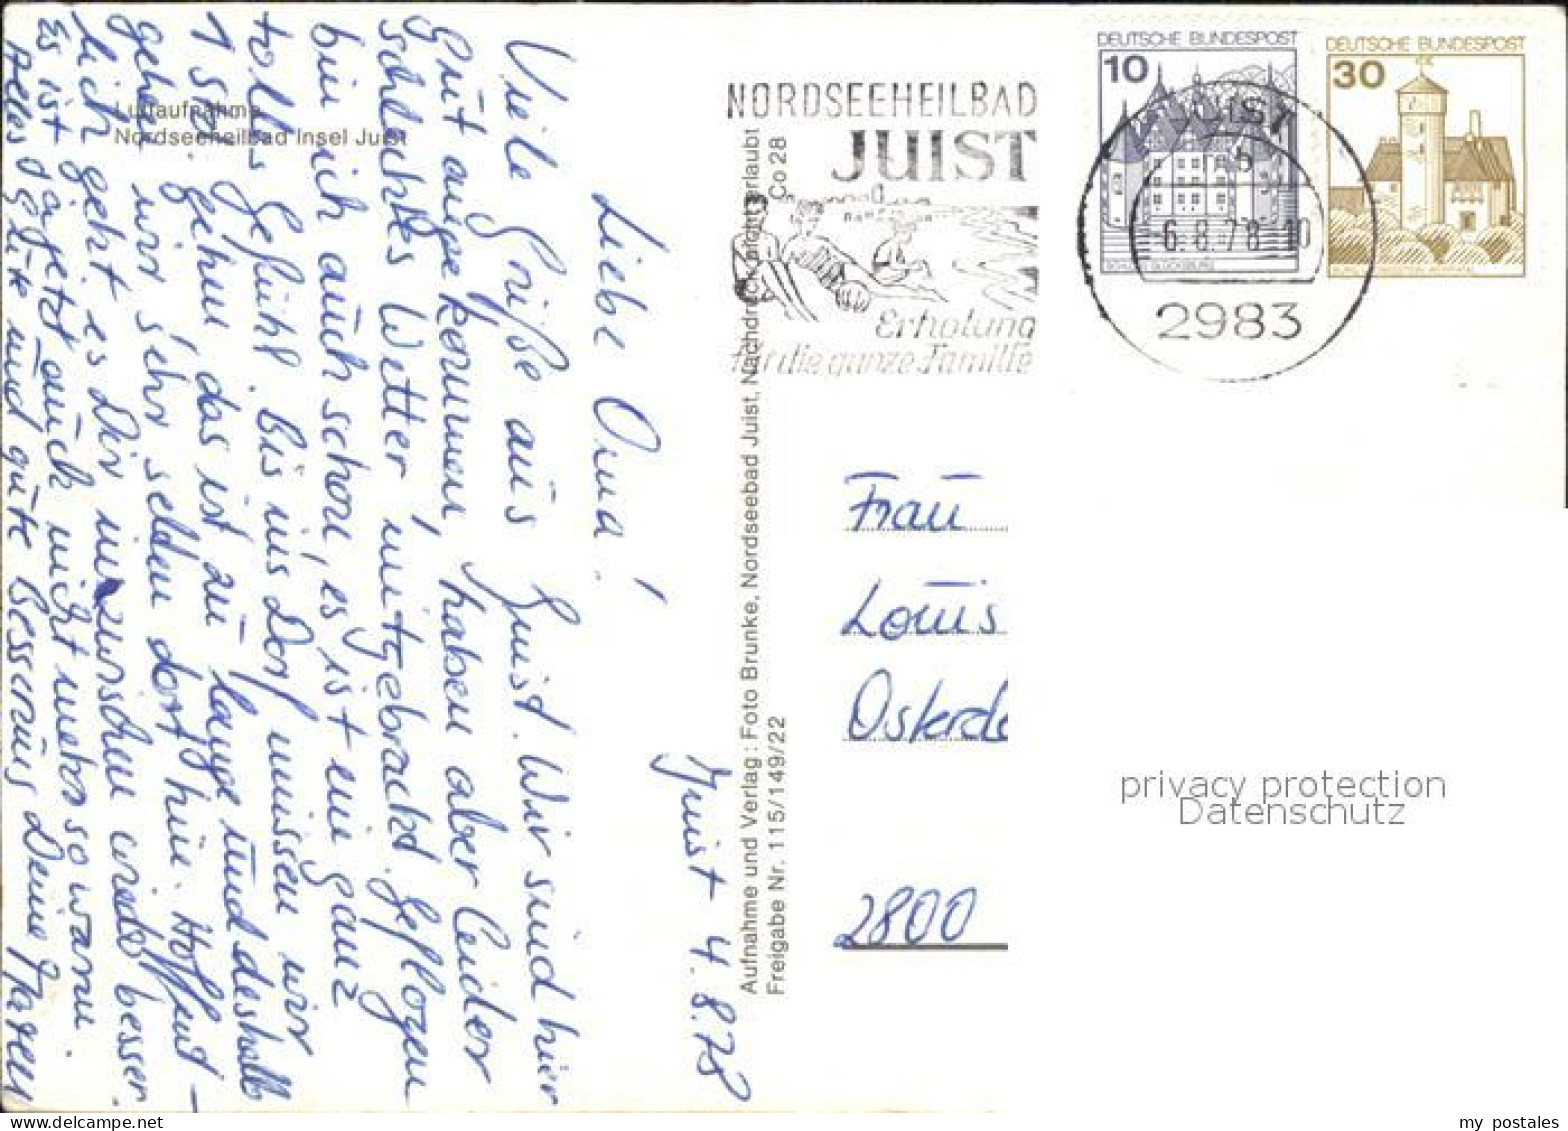 Luftaufnahme
Nordseeheilbad Insel Juist
Juist 4.8.78
Liebe Oma!
Viele Grüße aus Juist. Wir sind hier
gut angekommen, haben aber leider
schlechtes Wetter mitgebracht. Geflogen
bin ich auch schon, es ist ein ganz
tolles Gefühl. Bis ins Dorf müssen wir
1 Std. gehen, das ist zu lange und deshalb
gehen wir sehr selten dort hin. Hoffent-
lich geht es Dir inzwischen wieder besser.
Es ist ja jetzt auch nicht mehr so warm.
Alles Gute und gute Besserung Deine Maren
Aufnahme und Verlag: Foto Brunke, Nordseebad Juist, Nachdruck nicht erlaubt
Freigabe Nr. 115/149/22
Co 28
NORDSEEHEILBAD
JUIST
Erholung
für die ganze Familie
DEUTSCHE BUNDESPOST
10
SCHLOSS GLÜCKSBURG
DEUTSCHE BUNDESPOST
30
JUIST
b
6.8.78-10
2983
Frau
Louis
Osterde
2800
privacy protection
Datenschutz
my postales